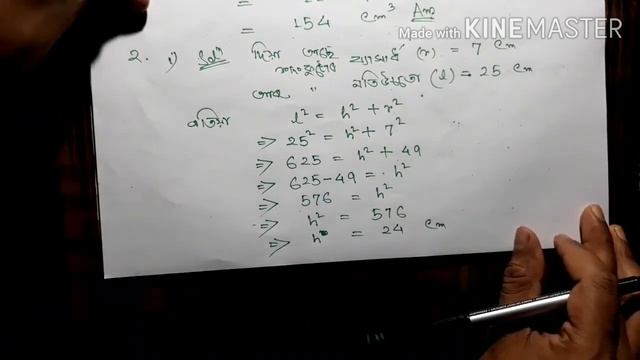 =
= 154 cm³ Ans
Made with KINEMASTER
2. i) Solⁿ দিয়া আছে ব্যাসাৰ্ধ (r) = 7 cm
আৰু " (l) = 25 cm
এতিয়া l² = h² + r²
⇒ 25² = h² + 7²
⇒ 625 = h² + 49
⇒ 625-49 = h²
⇒ 576 = h²
⇒ h² = 576
⇒ h = 24 cm